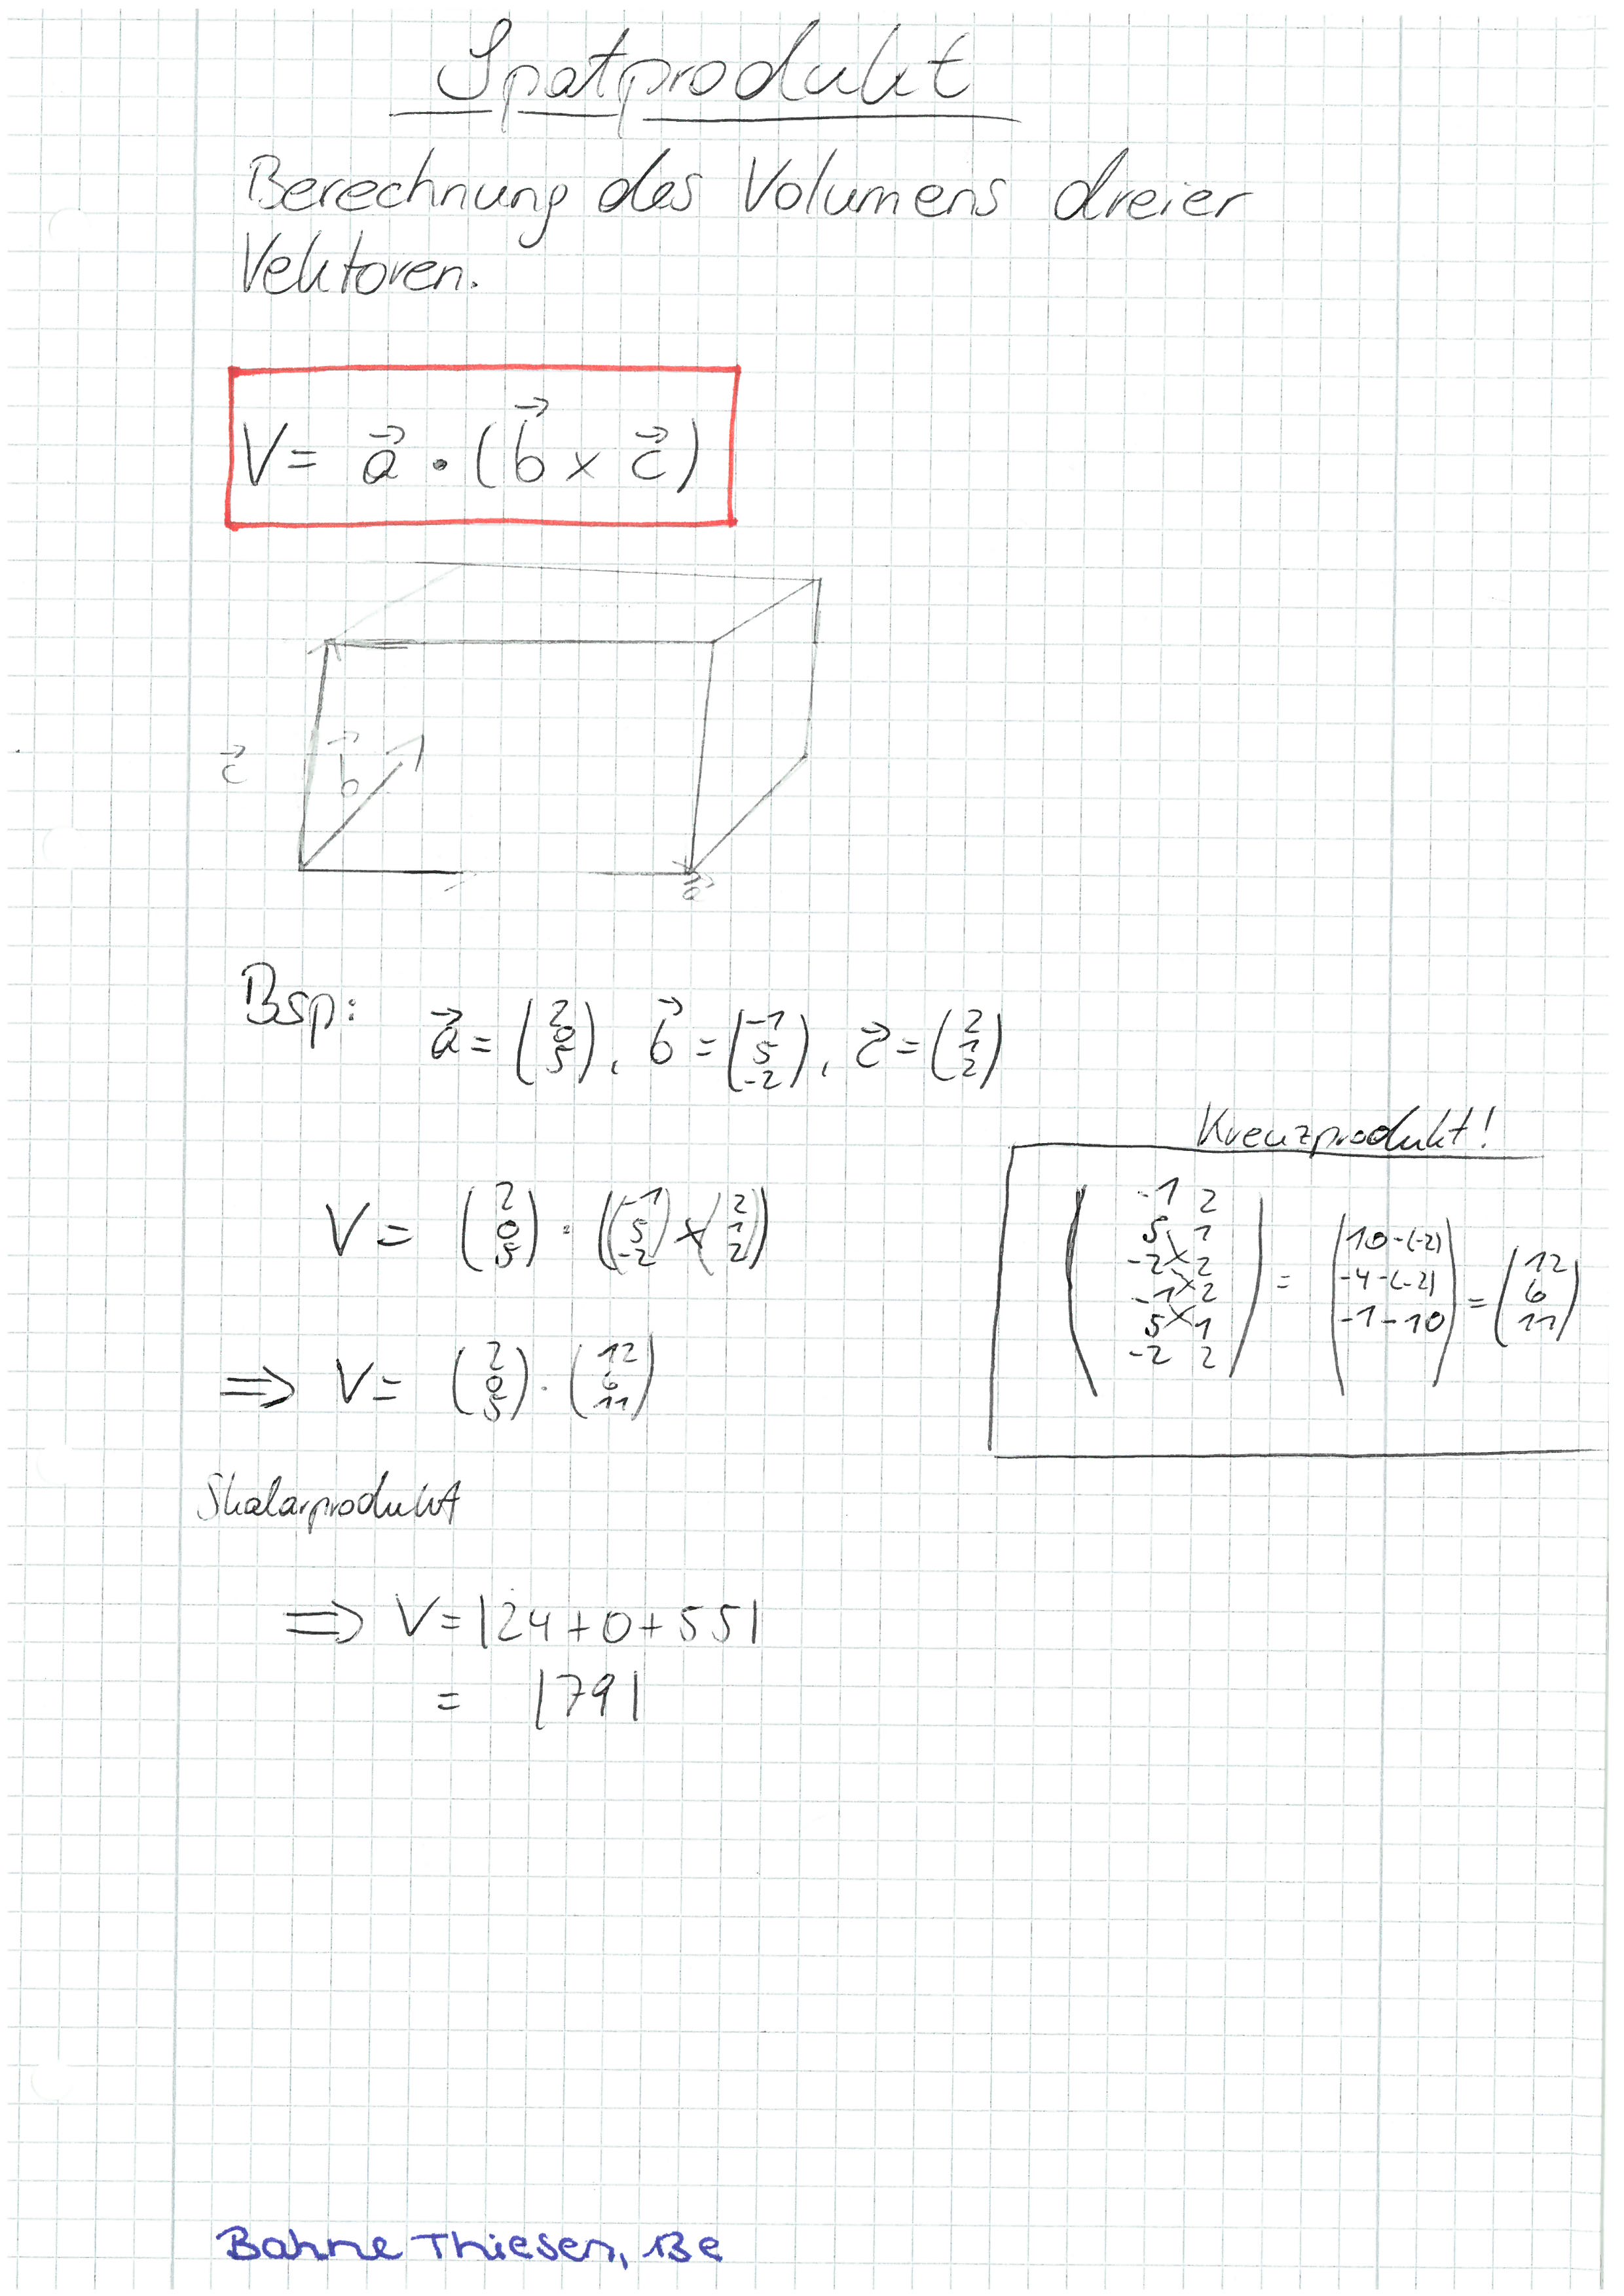 Spatprodukt
Berechnung des Volumens dreier
Vektoren.
V = a⃗ · (b⃗ × c⃗)
c⃗
b⃗
a⃗
Bsp: a⃗ = (2 0 5), b⃗ = (-1 5 -2), c⃗ = (2 1 2)
Kreuzprodukt!
V = (2 0 5) · ((-1 5 -2) × (2 1 2))
-1 2
5 1
-2 × 2
-1 × 2
5 × 1
-2 2
= (10-(-2) -4-(-2) -1-10) = (12 6 11)
⇒ V = (2 0 5) · (12 6 11)
Skalarprodukt
⇒ V = |24+0+55|
= |79|
Bahne Thiesen, 13e